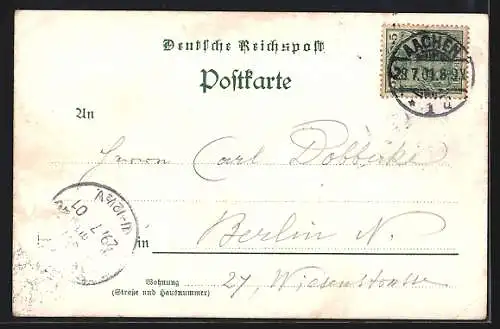 Deutsche Reichspost
Postkarte
AACHEN
28.7.01.8-9V.
* 1 d
An
Herrn Carl Dobberke
29.7.01
11-12½V
in Berlin N.
Wohnung
(Straße und Hausnummer)
27, Wiesenstrasse